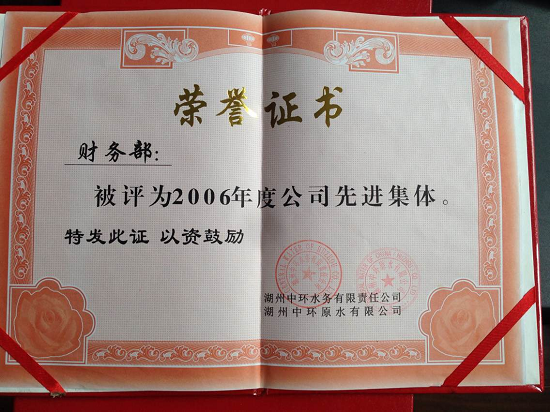 荣誉证书
财务部：
被评为2006年度公司先进集体。
特发此证 以资鼓励
湖州中环水务有限责任公司
湖州中环原水有限公司